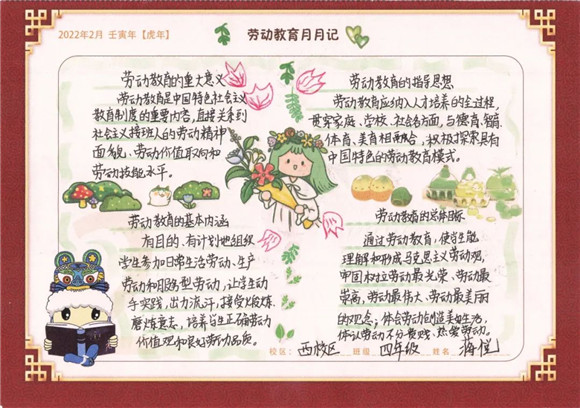 2022年2月 壬寅年【虎年】
劳动教育月月记
劳动教育的重大意义
劳动教育是中国特色社会主义
教育制度的重要内容，直接关系到
社会主义接班人的劳动精神
面貌、劳动价值取向和
劳动技能水平。
劳动教育的指导思想
劳动教育应纳入人才培养的全过程，
贯穿家庭、学校、社会各方面，与德育、智育、
体育、美育相融合，积极探索具有
中国特色的劳动教育模式。
劳动教育的基本内涵
有目的、有计划地组织
学生参加日常生活劳动、生产
劳动和服务型劳动，让学生动
手实践，出力流汗，接受锻炼、
磨炼意志，培养学生正确劳动
价值观和良好劳动品质。
劳动教育的总体目标
通过劳动教育，使学生能
理解和形成马克思主义劳动观，
牢固树立劳动最光荣、劳动最
崇高、劳动最伟大、劳动最美丽
的观念；体会劳动创造美好生活，
体认劳动不分贵贱，热爱劳动。
校区：西校区 班级 四年级 姓名 蒋悦